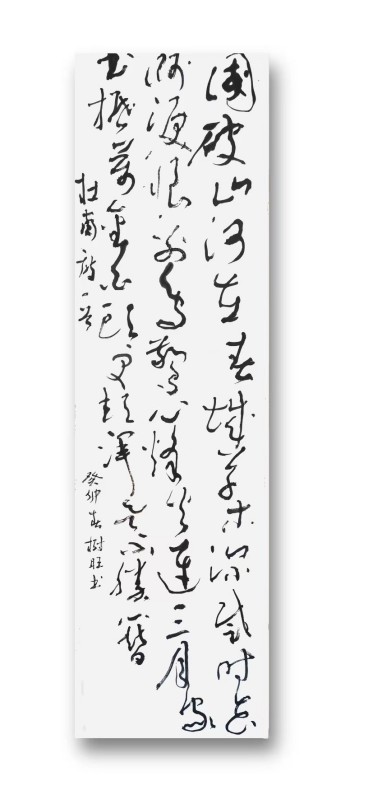 國破山河在春城草木深感时花
溅淚恨别鸟驚心烽火連三月家
书抵萬金白頭更短渾欲不勝簪
杜甫诗一首
癸卯春樹旺书